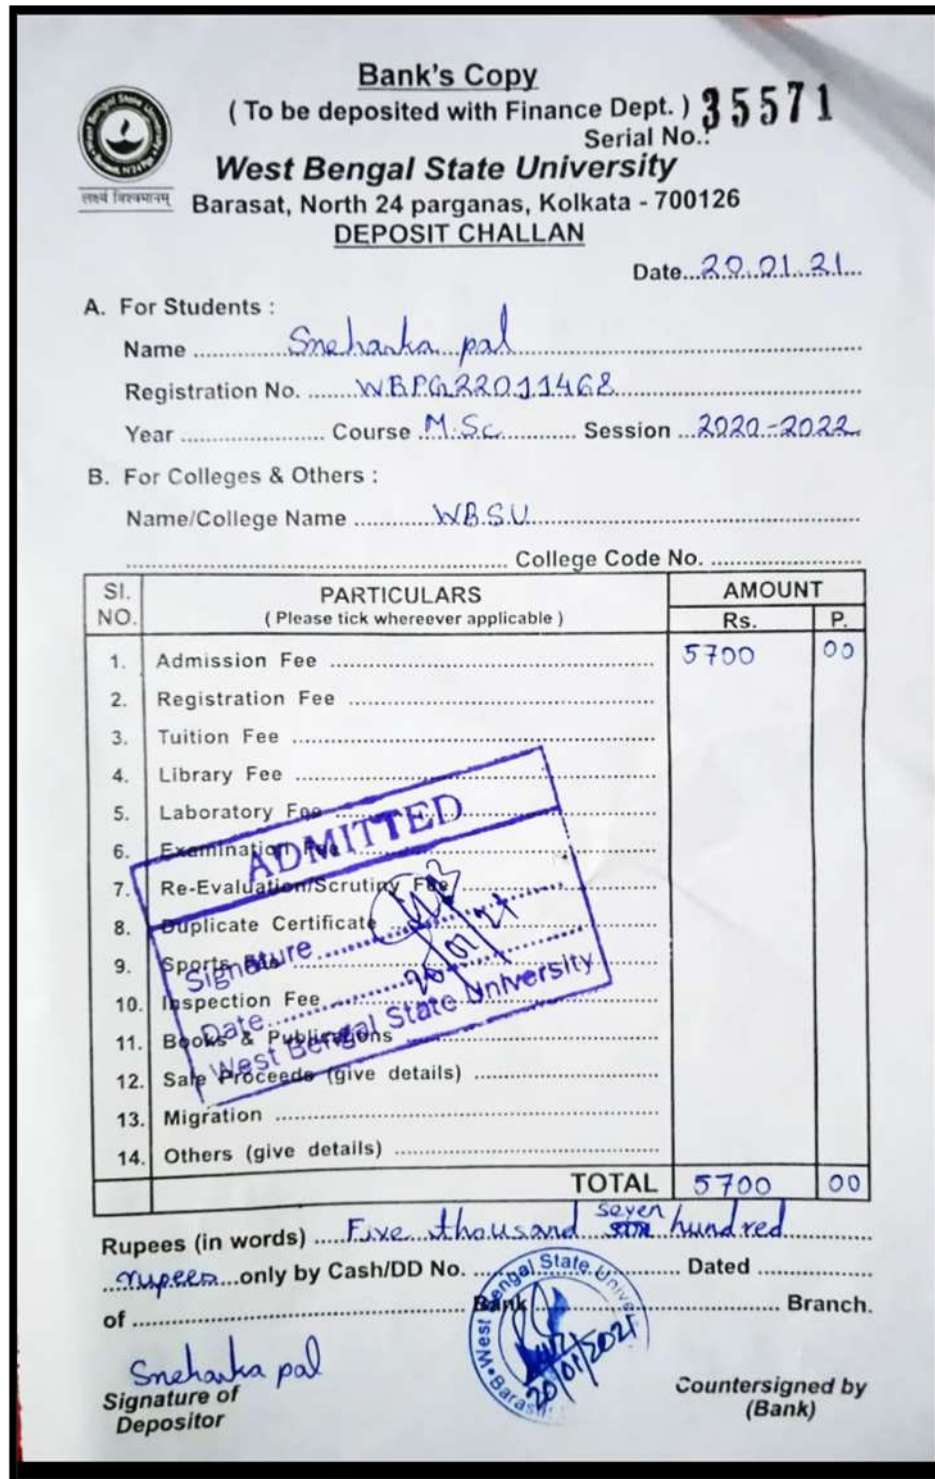 Bank's Copy
( To be deposited with Finance Dept. ) 35571
Serial No.:
West Bengal State University
लक्ष्यं विश्वमानम्
Barasat, North 24 parganas, Kolkata - 700126
DEPOSIT CHALLAN
Date...20.01.21...
A. For Students :
Name ........ Snehanka pal ........
Registration No. ........ WBPG22011468 ........
Year ........ Course M.Sc. ........ Session 2020-2022
B. For Colleges & Others :
Name/College Name ........ WBSU ........
........ College Code No. ........
Sl. NO. PARTICULARS AMOUNT
( Please tick whereever applicable ) Rs. P.
1. Admission Fee ........ 5700 00
2. Registration Fee ........
3. Tuition Fee ........
4. Library Fee ........
5. Laboratory Fee ........
6. Examination Fee ........
7. Re-Evaluation/Scrutiny Fee ........
8. Duplicate Certificate ........
9. Sports Fee ........
10. Inspection Fee ........
11. Books & Publications ........
12. Sale Proceeds (give details) ........
13. Migration ........
14. Others (give details) ........
ADMITTED
Signature ........
Date ........ 20/01/21
West Bengal State University
TOTAL 5700 00
Rupees (in words) ..... Five thousand seven hundred ........
rupees ... only by Cash/DD No. ........ Dated ........
of ........ Bank ........ Branch.
West Bengal State Univer
Baras
20/01/2021
Snehanka pal
Signature of Depositor
Countersigned by (Bank)